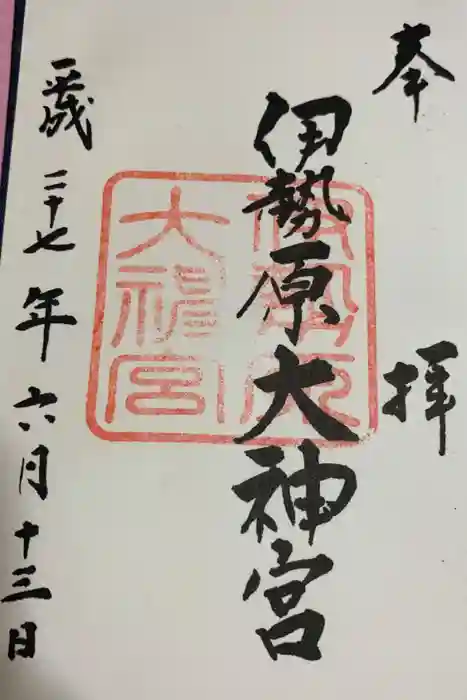 奉拝
伊勢原大神宮
伊勢原
大神宮
平成二十七年六月十三日